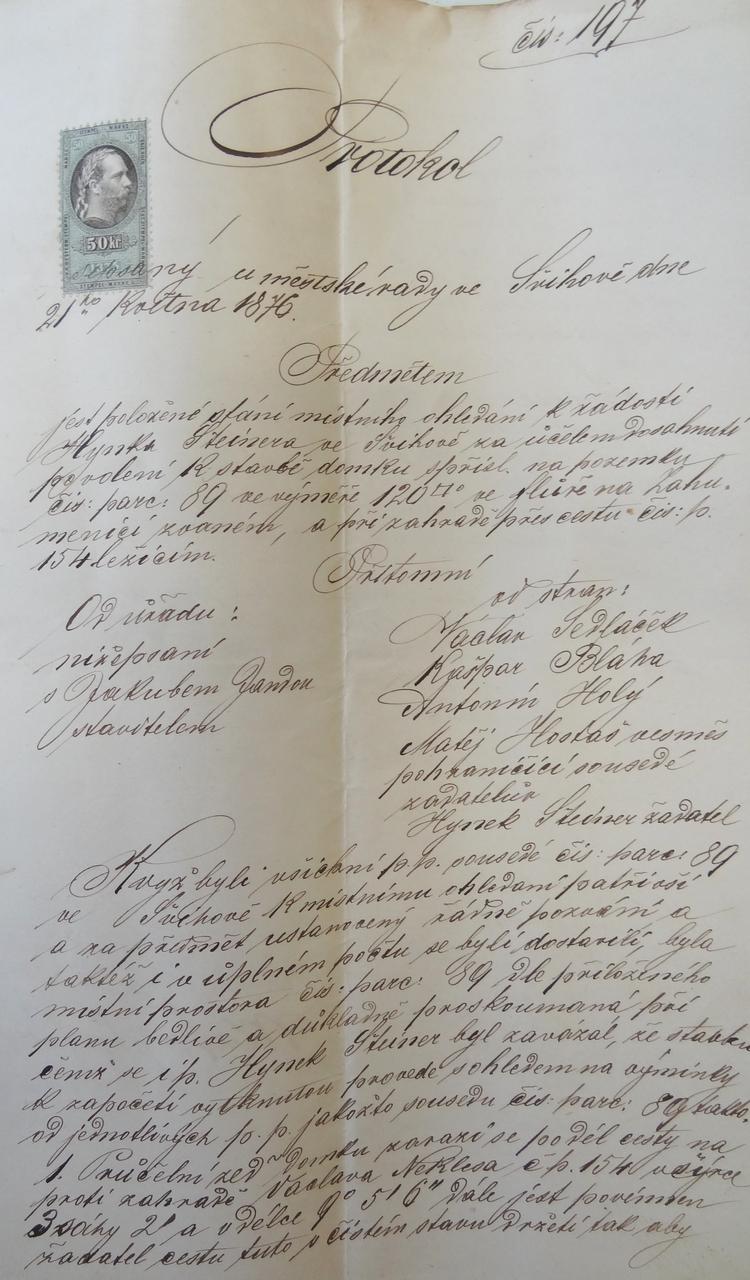 čís: 197
Protokol
50 kr
sepsaný u městské rady ve Švihově dne
21ho Května 1876.
Předmětem
jest položené stání místního ohledání k žádosti
Hynka Steinera ve Švihově za účelem dosáhnutí
povolení k stavbě domku s přísl. na pozemku
čís: parc: 89 ve výměře 120 □° ve flůře na Záhu-
menicí zvaném, a při zahradě přes cestu čís: p.
154 ležícím.
Přítomní
Od úřadu:
nížepsaní
s Jakubem Jandou
stavitelem
od stran:
Václav Sedláček
Kašpar Bláha
Antonín Holý
Matěj Hostaš vesměs
pohraničící sousedé
žadatelův
Hynek Steiner žadatel
Když byli všichní p. p. sousedé čís: parc: 89
ve Švihově k místnímu ohledaní patřivší
a na předmět ustanovený řádně pozváni a
taktéž i v úplném počtu se byli dostavili, byla
místní prostora čís: parc: 89 dle přiloženého
planu bedlivě a důkladně proskoumaná, při
čemž se i p. Hynek Steiner byl zavázal, že stavbu
k započetí vytknutou provede s ohledem na výmínky
od jednotlivých p. p. jakožto sousedu čís: parc: 89 takto:
1. Průčelní zeď domku zarazí se podél cesty na
proti zahradě Václava Neklesa č p. 154 v šířce
3 sáhy 2' a v délce 9° 5' 6" dále jest povinnen
žadatel cestu tuto v čistém stavu držeti tak aby